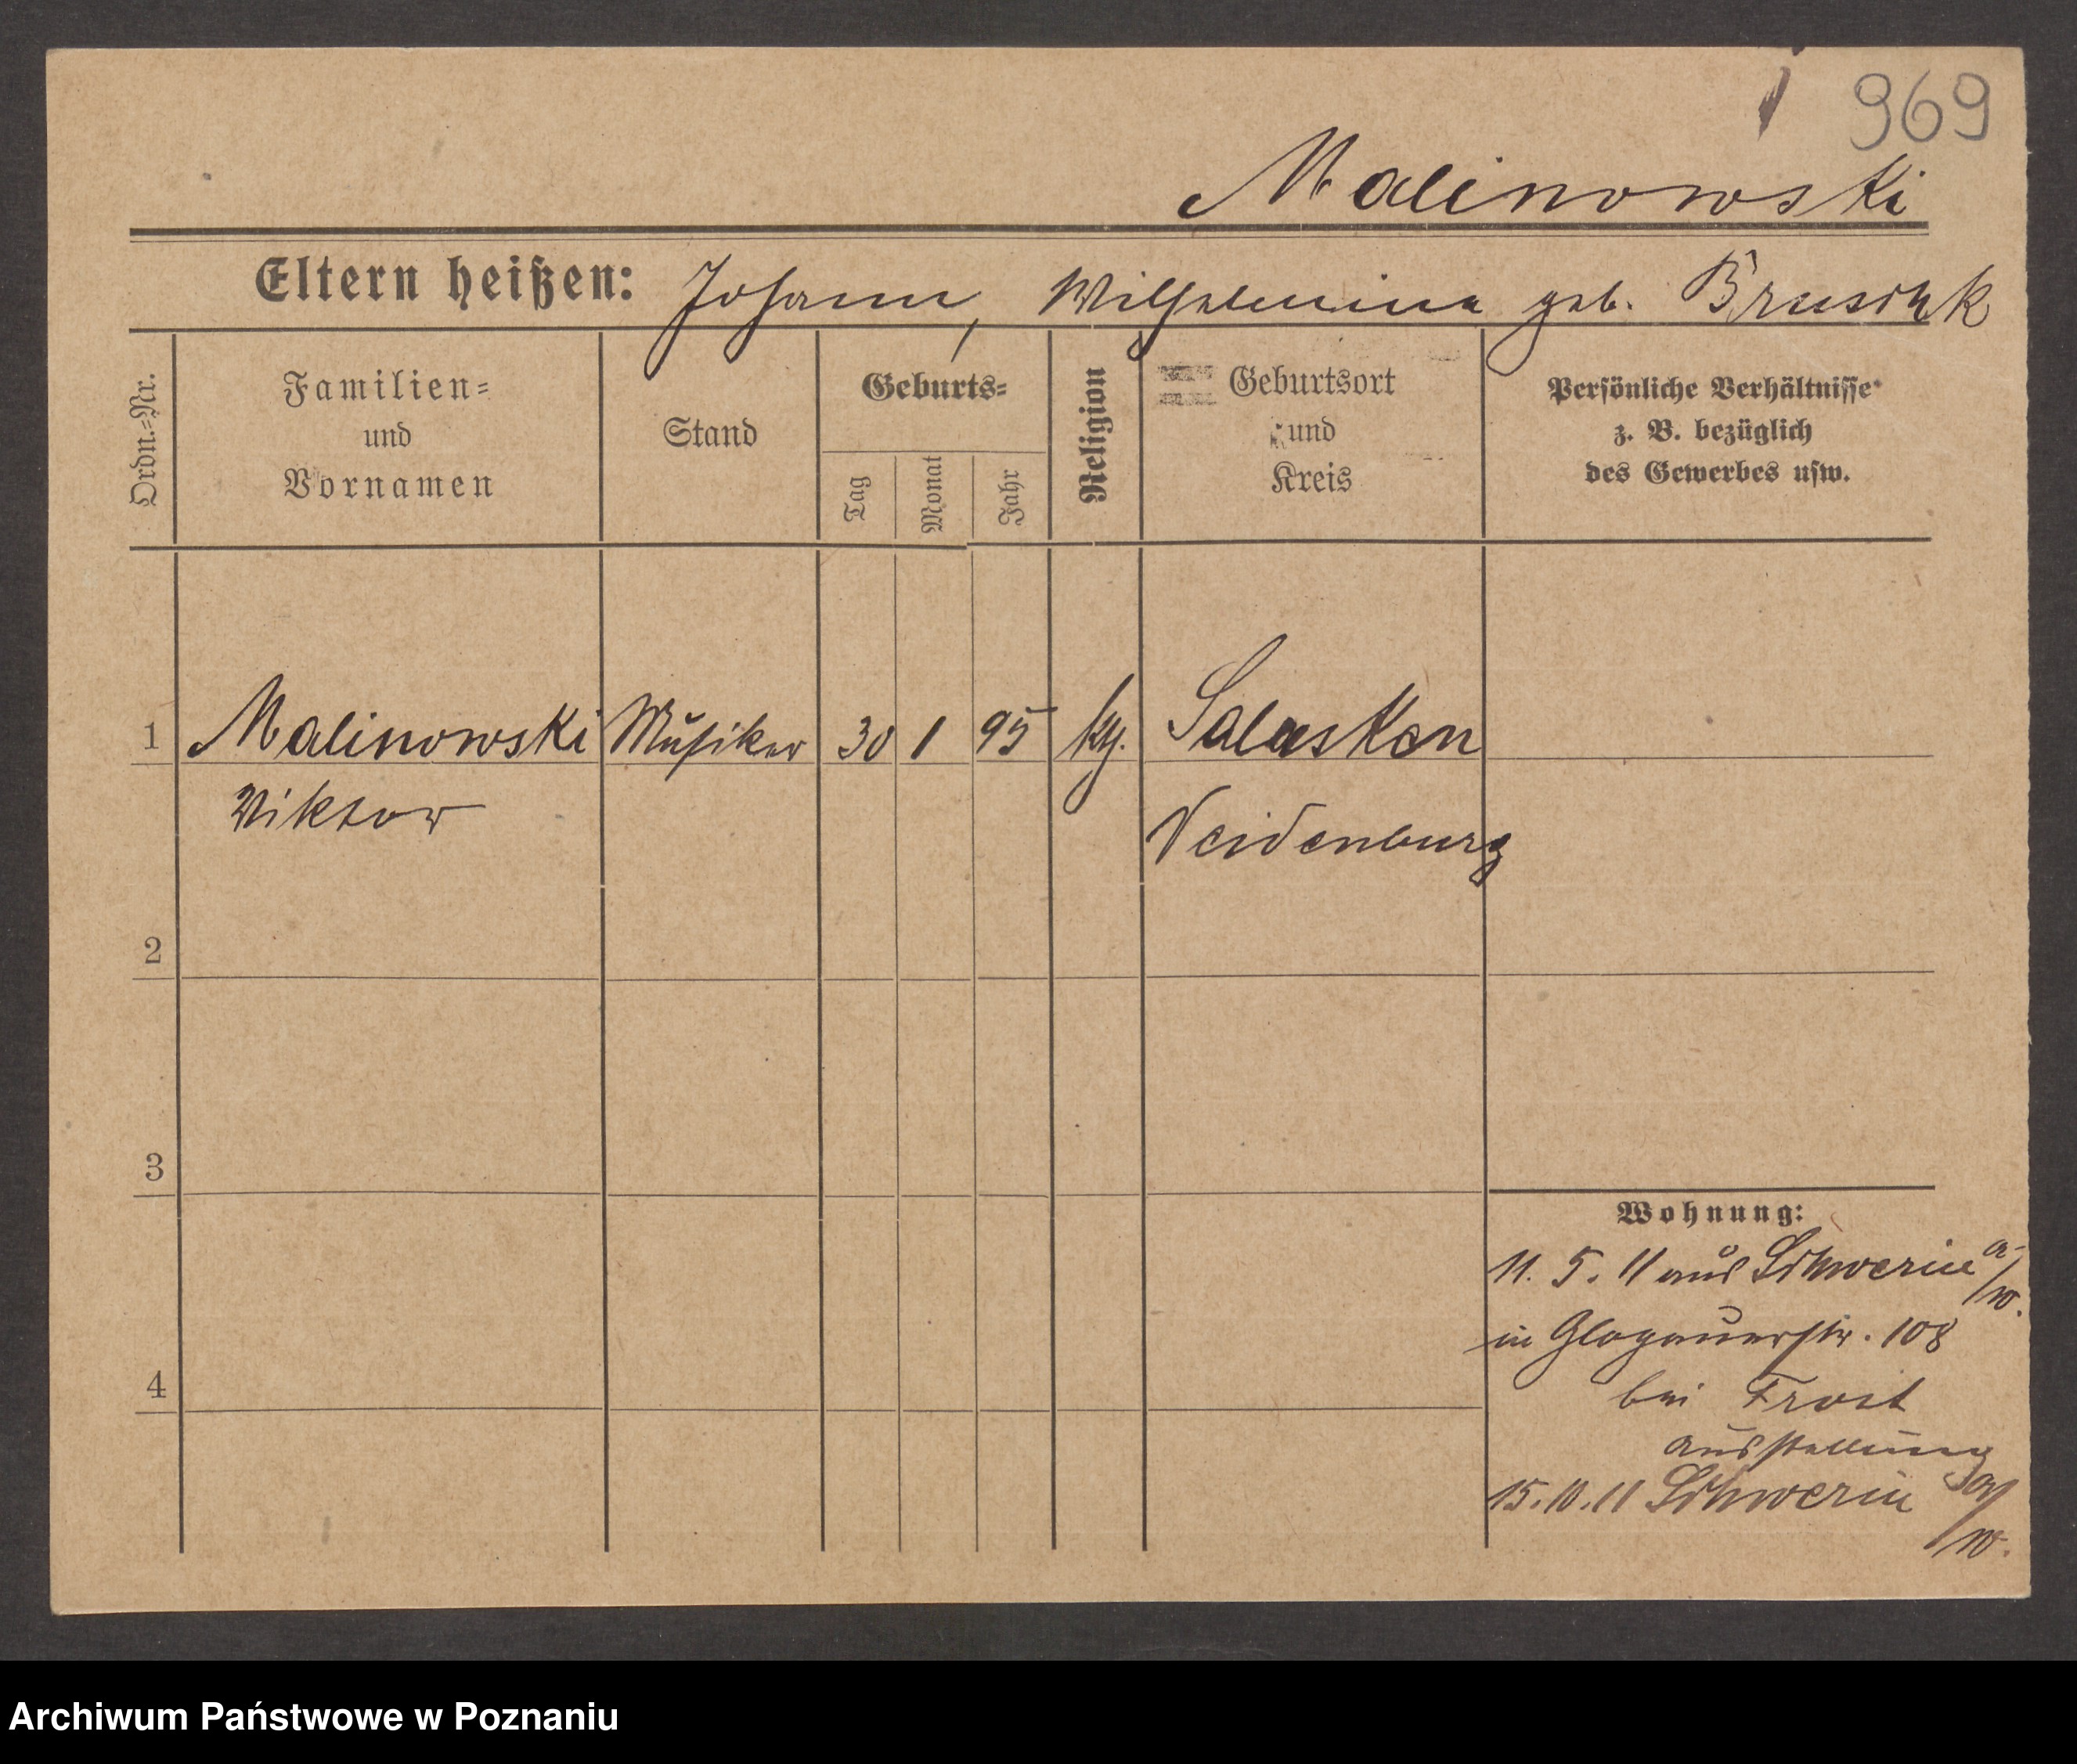 969
Malinowski
Eltern heißen: Johann, Wilhelmina geb. Bruschk
Ordn.=Nr.
Familien=
und
Vornamen
Stand
Geburts=
Tag
Monat
Jahr
Religion
Geburtsort
und
Kreis
Persönliche Verhältnisse
z. B. bezüglich
des Gewerbes usw.
1 Malinowski Musiker 30 1 95 Salusken
Viktor
Neidenburg
2
3
4
Wohnung:
11. 5. 11 aus Schwerin a/w.
in Glogauerstr. 108
bei Frost
Ausstellung
15.10.11 Schwerin a/w.
Archiwum Państwowe w Poznaniu